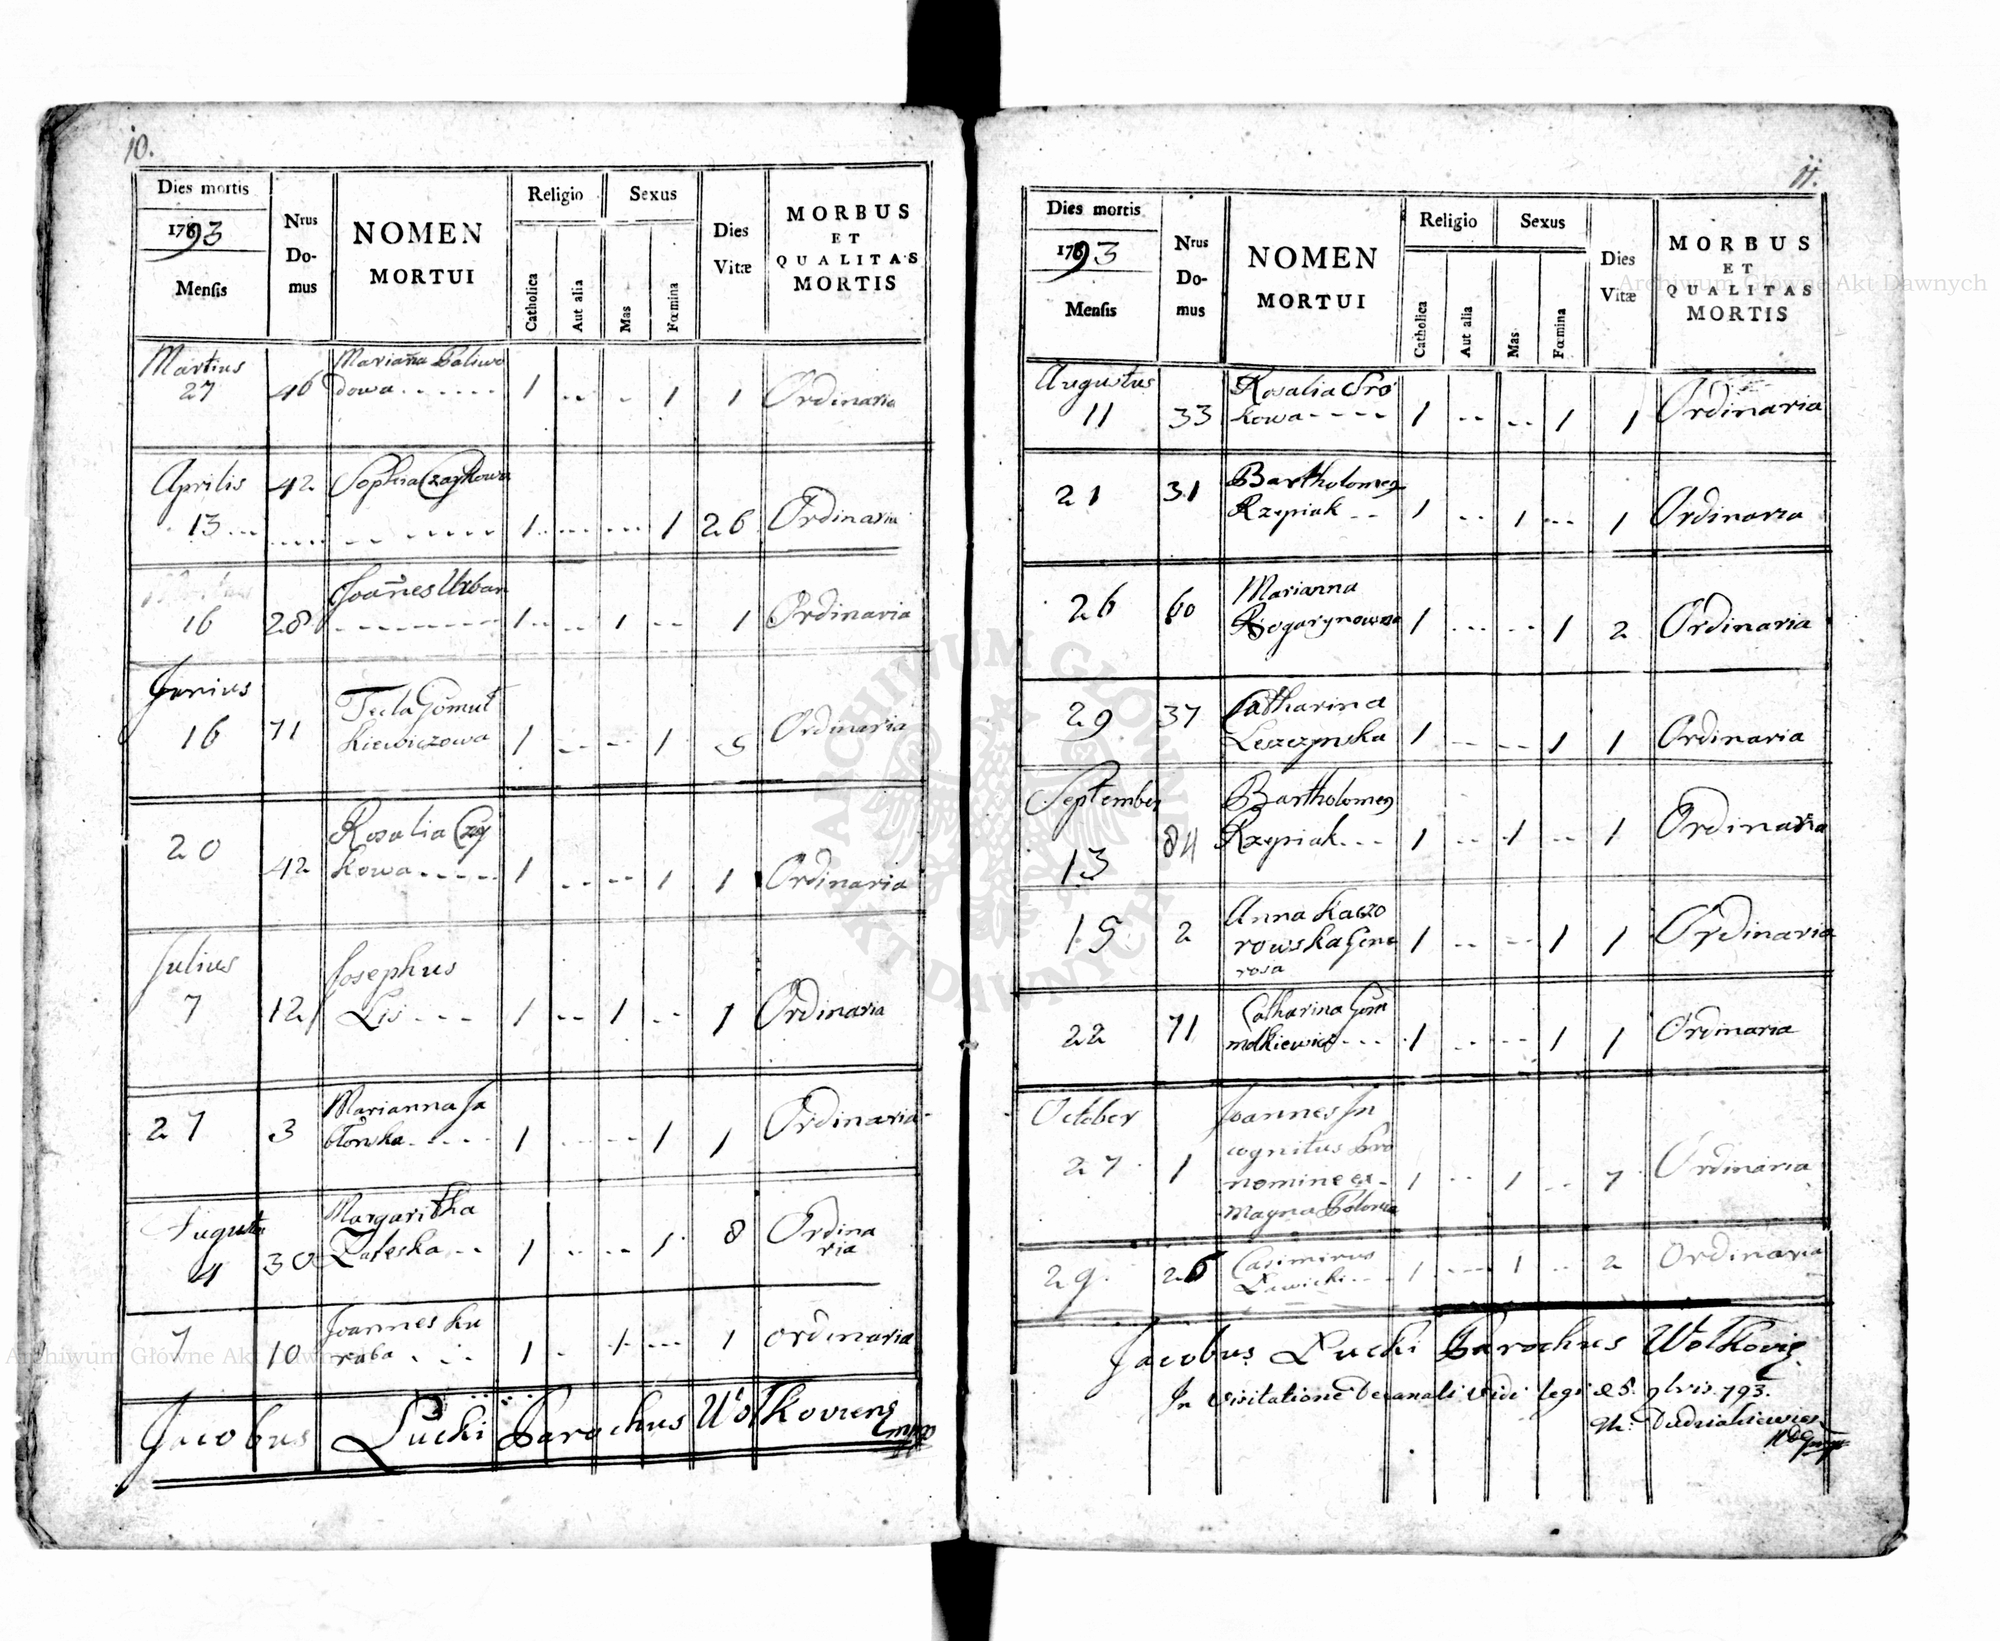 10.
Dies mortis
1793
Mensis
Nrus
Do-
mus
NOMEN
MORTUI
Religio
Catholica
Aut alia
Sexus
Mas
Fœmina
Dies
Vitæ
MORBUS
ET
QUALITAS
MORTIS
Martius Marianna Paliwo
27 46 dowa - - - - - - 1 - - - 1 1 Ordinaria
Aprilis 42 Sophia Czaykowa
13 - - - 1 - - - - - 1 26 Ordinaria
Joanes Urban
16 28 - - - - - - 1 - - - - 1 - - 1 Ordinaria
Junius Tecla Gomuł
16 71 kiewiczowa 1 - - - - 1 5 Ordinaria
20 Rosalia Czay
42 kowa - - - - - 1 - - - - 1 1 Ordinaria
Julius Josephus
7 12 Lis - - - 1 - - 1 - - 1 Ordinaria
27 3 Marianna Ja
błonska - - - - 1 - - - - 1 1 Ordinaria
Augustus Margaritha
4 30 Zaleska - - 1 - - - - 1 8 Ordina
ria
7 10 Joannes Ku
raba - - - 1 - 1 - - - 1 ordinaria
Jacobus Łucki Parochus Wołkoviens mpp
11.
Dies mortis
1793
Mensis
Nrus
Do-
mus
NOMEN
MORTUI
Religio
Catholica
Aut alia
Sexus
Mas
Fœmina
Dies
Vitæ
MORBUS
ET
QUALITAS
MORTIS
Augustus Rosalia Sro
11 33 kowa - - - - 1 - - - - 1 1 Ordinaria
21 31 Bartholomeg
Rzepiak - - 1 - - 1 - - - 1 Ordinaria
26 60 Marianna
1 - - - - - 1 2 Ordinaria
29 37 Catharina
Leszczynska 1 - - - - 1 1 Ordinaria
September Bartholomeg
13 84 Rzepiak - - - 1 - - 1 - - 1 Ordinaria
15 2 Anna Kaczo
rowska Gene 1 - - - - 1 1 Ordinaria
rosa
22 71 Catharina Gom
molkiewicz - - - 1 - - - - - 1 1 Ordinaria
October Joannes In
27 1 cognitus Pro
nomine ex - 1 - - 1 - - 7 Ordinaria
Magna Polonia
29 26 Casimirus
Lewicki - - - 1 - - - 1 - - 2 Ordinaria
Jacobus Łucki Parochus Wołkovie
In visitatione Decanali vidi legi 25 9bris 793.
Dudziakiewicz
ARCHIWUM GŁÓWNE AKT DAWNYCH
Archiwum Główne Akt Dawnych
Archiwum Główne Akt Dawnych